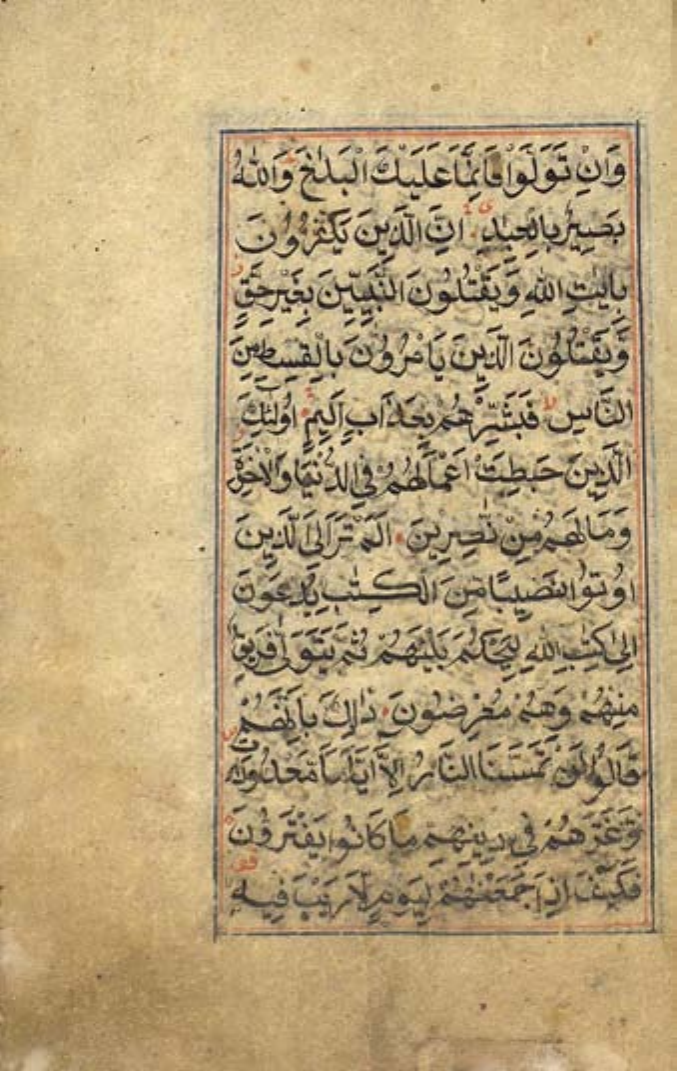 وَاِنْ تَوَلَّوْا فَاِنَّمَا عَلَيْكَ الْبَلٰغُ وَاللّٰهُ
بَصِيْرٌ بِالْعِبَادِ اِنَّ الَّذِيْنَ يَكْفُرُوْنَ
بِاٰيٰتِ اللّٰهِ وَيَقْتُلُوْنَ النَّبِيّٖنَ بِغَيْرِ حَقٍّ
وَّيَقْتُلُوْنَ الَّذِيْنَ يَاْمُرُوْنَ بِالْقِسْطِ مِنَ
النَّاسِ فَبَشِّرْهُمْ بِعَذَابٍ اَلِيْمٍ اُولٰٓئِكَ
الَّذِيْنَ حَبِطَتْ اَعْمَالُهُمْ فِي الدُّنْيَا وَالْاٰخِرَةِ
وَمَا لَهُمْ مِنْ نّٰصِرِيْنَ اَلَمْ تَرَ اِلَى الَّذِيْنَ
اُوْتُوْا نَصِيْبًا مِّنَ الْكِتٰبِ يُدْعَوْنَ
اِلٰى كِتٰبِ اللّٰهِ لِيَحْكُمَ بَيْنَهُمْ ثُمَّ يَتَوَلّٰى فَرِيْقٌ
مِنْهُمْ وَهُمْ مُعْرِضُوْنَ ذٰلِكَ بِاَنَّهُمْ
قَالُوْا لَنْ تَمَسَّنَا النَّارُ اِلَّا اَيَّامًا مَّعْدُوْدٰتٍ
وَّغَرَّهُمْ فِيْ دِيْنِهِمْ مَا كَانُوْا يَفْتَرُوْنَ
فَكَيْفَ اِذَا جَمَعْنٰهُمْ لِيَوْمٍ لَا رَيْبَ فِيْهِ